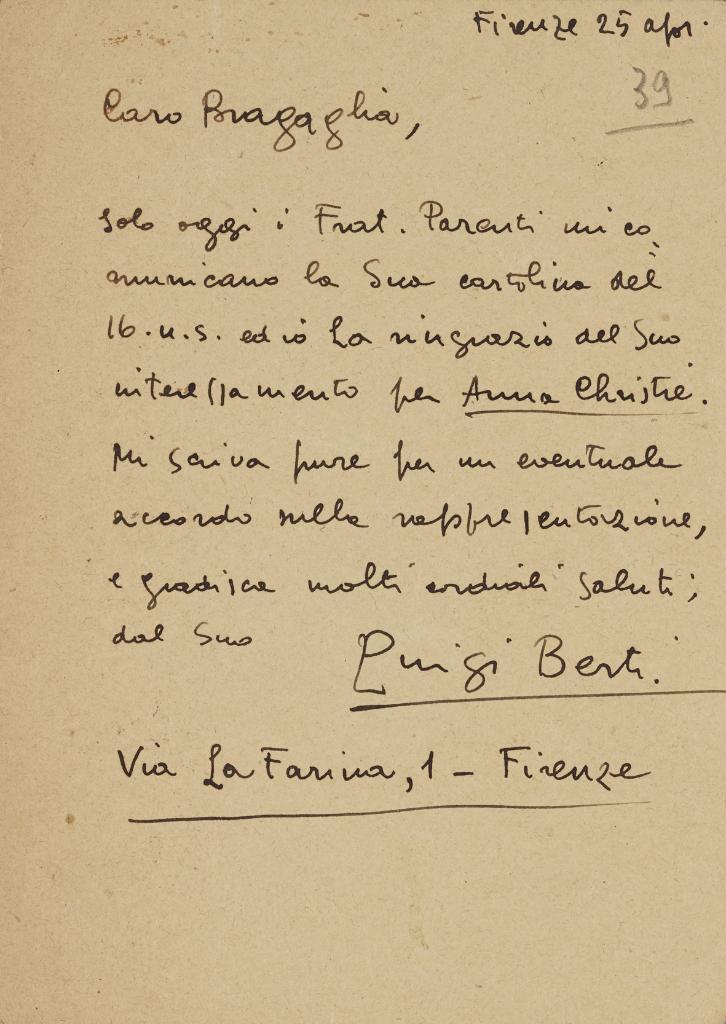 Firenze 25 apr.
39
Caro Bragaglia,
solo oggi i Frat. Parenti mi co
municano la Sua cartolina del
16.u.s. ed io La ringrazio del Suo
interessamento per Anna Christie.
Mi scriva pure per un eventuale
accordo sulla rappresentazione,
e gradisca molti cordiali saluti;
dal Suo
Luigi Berti.
Via La Farina, 1 - Firenze